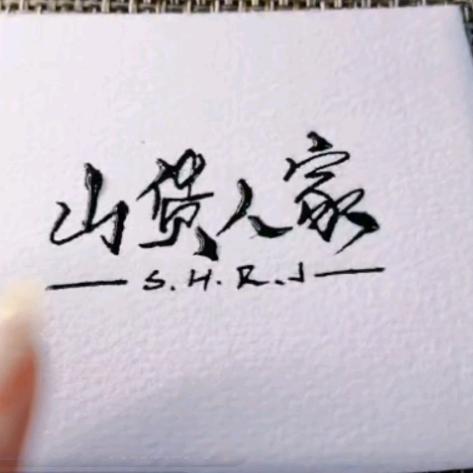 山货人家
S.H.R.J